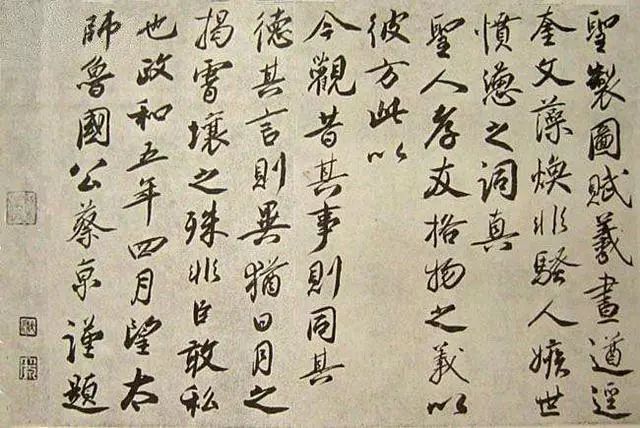 聖製圖賦羲畫遒逕
奎文藻煥非騷人嫉世
憤懣之詞真
聖人孝友格物之義以
彼方此以
今觀昔其事則同其
德其言則異猶日月之
揭霄壤之殊非臣敢私
也政和五年四月望太
師魯國公蔡京謹題